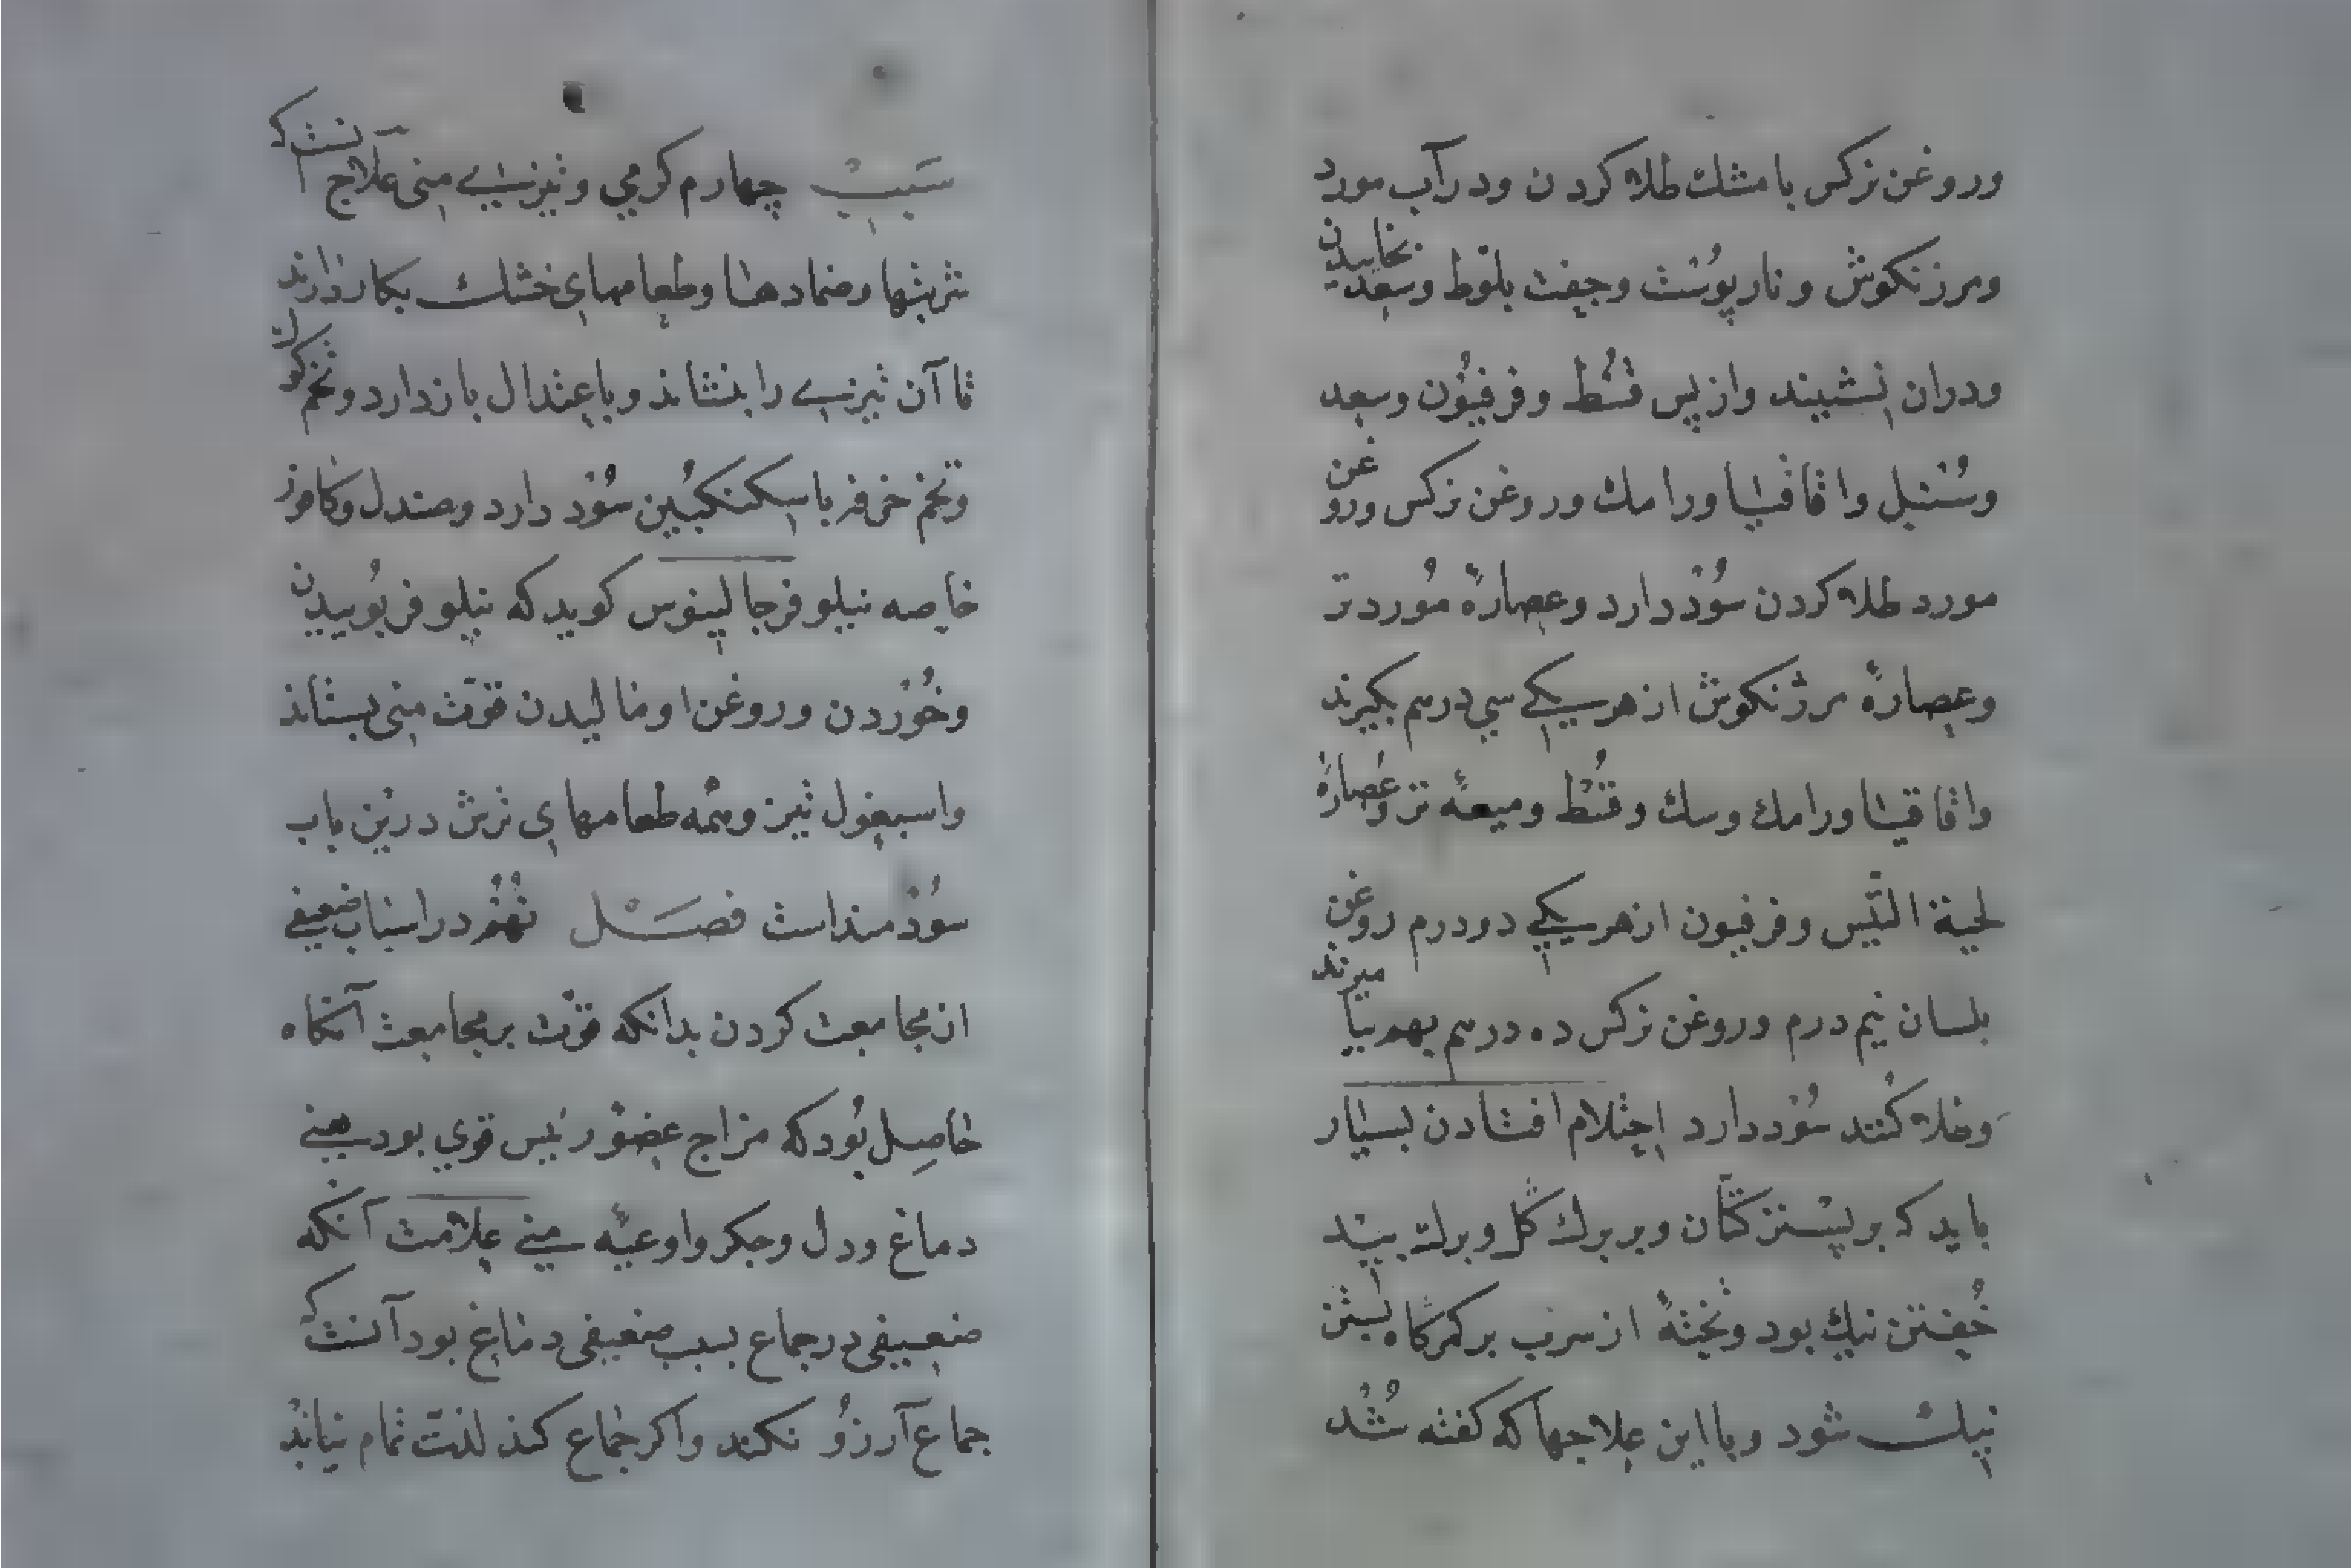 وروغن نرکس با مشک طلاء کردن ودر آب مورد
ومرزنکوش و نار پوست وجفت بلوط وسعد بخایند
ودران نشینند واز پس قسط وفرفیون وسعد
وسنبل واقاقیا ورامک وروغن نرکس وروغن
مورد طلاء کردن سود دارد وعصارهٔ مورد تر
وعصارهٔ مرزنکوش از هر یکی سی درم بکیرند
واقاقیا ورامک وسک وقسط ومیعهٔ تر وعصارهٔ
لحیة التیس وفرفیون از هر یکی دو درم روغن
بلسان نیم درم وروغن نرکس ده درم بهم بیامیزند
وطلاء کنند سود دارد احتلام افتادن بسیار
باید که بر بستر کتان وبر برک کل وبرک بید
خفتن نیک بود وتختهٔ از سرب بر کمرکاه بستن
نیک شود وبا این علاجها که کفته شد
سبب چهارم کرمی وتیزیی منی علاج آنست که
شربتها وضمادها وطعامهای خشک بکار دارند
تا آن تیزیی را بنشاند وباعتدال باز دارد وتخم کوک
وتخم خرفه با سکنکبین سود دارد وصندل وکافور
خاصه نیلوفر جالینوس کوید که نیلوفر بوییدن
وخوردن وروغن او مالیدن قوت منی بستاند
واسبغول نیز وهمه طعامهای ترش درین باب
سودمند است فصل نهم در اسباب ضعیفی
از مجامعت کردن بدانکه قوت بر مجامعت آنکاه
حاصل بود که مزاج عضو رئیس قوی بود یعنی
دماغ ودل وجکر واوعیهٔ منی علامت آنکه
ضعیفی در جماع بسبب ضعیفی دماغ بود آنست که
جماع آرزو نکند واکر جماع کند لذت تمام نیابد